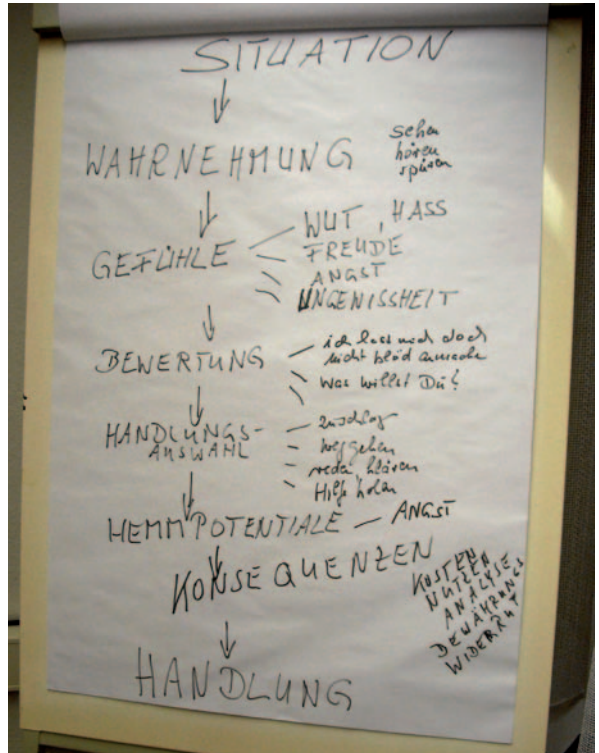 SITUATION
WAHRNEHMUNG
sehen
hören
spüren
GEFÜHLE
WUT, HASS
FREUDE
ANGST
UNGEWISSHEIT
BEWERTUNG
ich lass mich doch
nicht blöd anmache
Was willst Du?
HANDLUNGS-
AUSWAHL
zuschlag
weggehen
reden klären
Hilfe holen
HEMMPOTENTIALE
ANGST
KONSEQUENZEN
KOSTEN
NUTZEN
ANALYSE
BEWÄHRUNGS
WIDERRUF
HANDLUNG